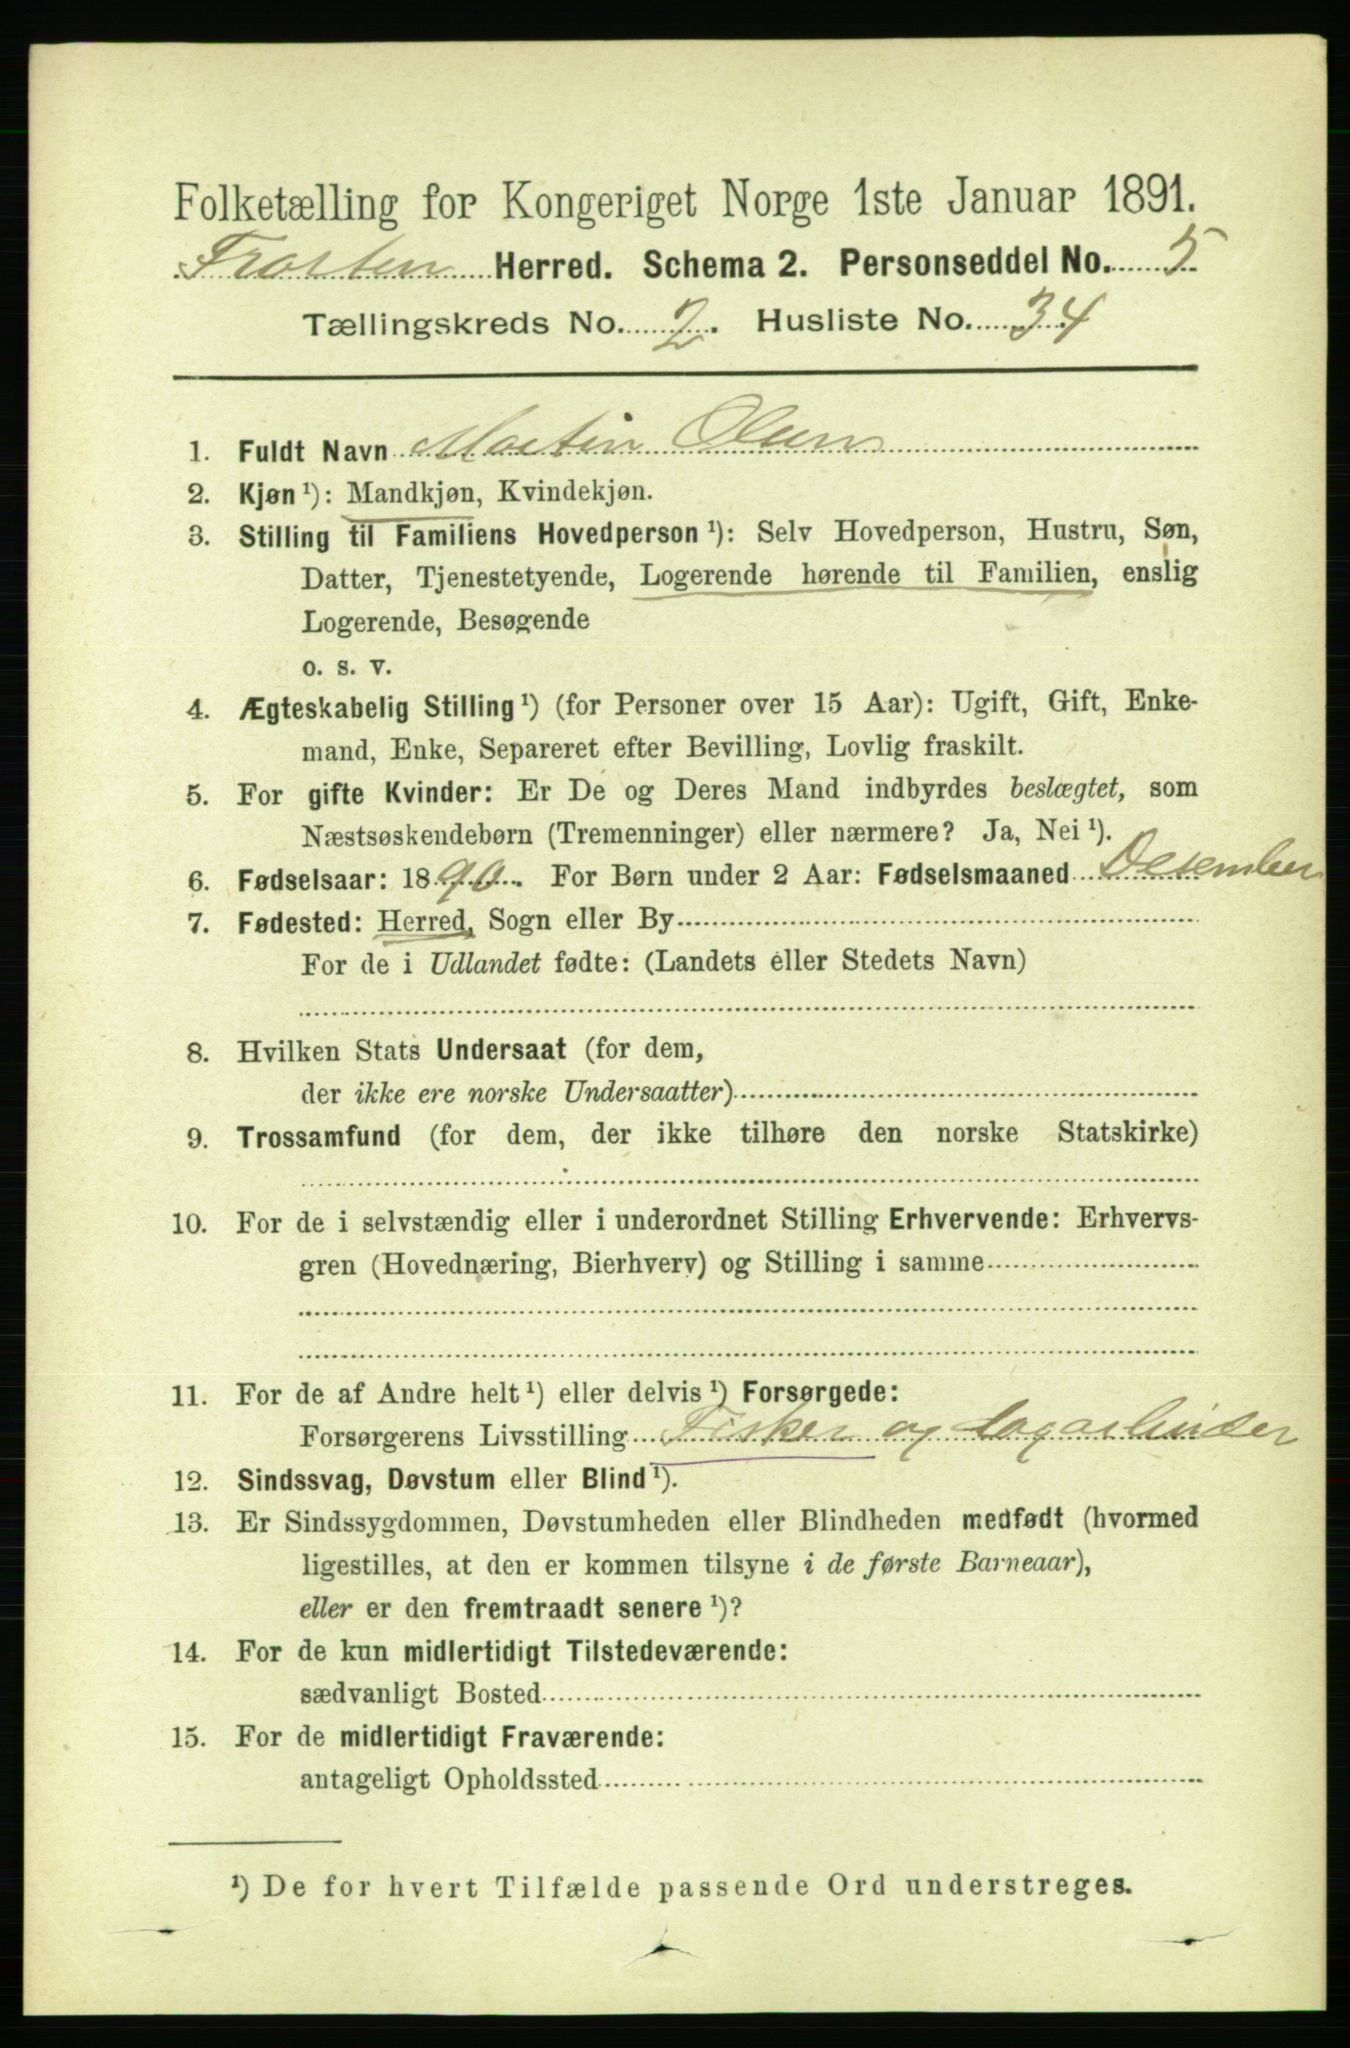 Folketælling for Kongeriget Norge 1ste Januar 1891.
Frosten Herred. Schema 2. Personseddel No. 5
Tællingskreds No. 2. Husliste No. 34
1. Fuldt Navn Martin Olsen
2. Kjøn ¹): Mandkjøn, Kvindekjøn.
3. Stilling til Familiens Hovedperson ¹): Selv Hovedperson, Hustru, Søn,
Datter, Tjenestetyende, Logerende hørende til Familien, enslig
Logerende, Besøgende
o. s. v.
4. Ægteskabelig Stilling ¹) (for Personer over 15 Aar): Ugift, Gift, Enke-
mand, Enke, Separeret efter Bevilling, Lovlig fraskilt.
5. For gifte Kvinder: Er De og Deres Mand indbyrdes beslægtet, som
Næstsøskendebørn (Tremenninger) eller nærmere? Ja, Nei ¹).
6. Fødselsaar: 1890. For Børn under 2 Aar: Fødselsmaaned Desember
7. Fødested: Herred, Sogn eller By
For de i Udlandet fødte: (Landets eller Stedets Navn)
8. Hvilken Stats Undersaat (for dem,
der ikke ere norske Undersaatter)
9. Trossamfund (for dem, der ikke tilhøre den norske Statskirke)
10. For de i selvstændig eller i underordnet Stilling Erhvervende: Erhvervs-
gren (Hovednæring, Bierhverv) og Stilling i samme
11. For de af Andre helt ¹) eller delvis ¹) Forsørgede:
Forsørgerens Livsstilling Fisker og
12. Sindssvag, Døvstum eller Blind ¹).
13. Er Sindssygdommen, Døvstumheden eller Blindheden medfødt (hvormed
ligestilles, at den er kommen tilsyne i de første Barneaar),
eller er den fremtraadt senere ¹)?
14. For de kun midlertidigt Tilstedeværende:
sædvanligt Bosted
15. For de midlertidigt Fraværende:
antageligt Opholdssted
¹) De for hvert Tilfælde passende Ord understreges.